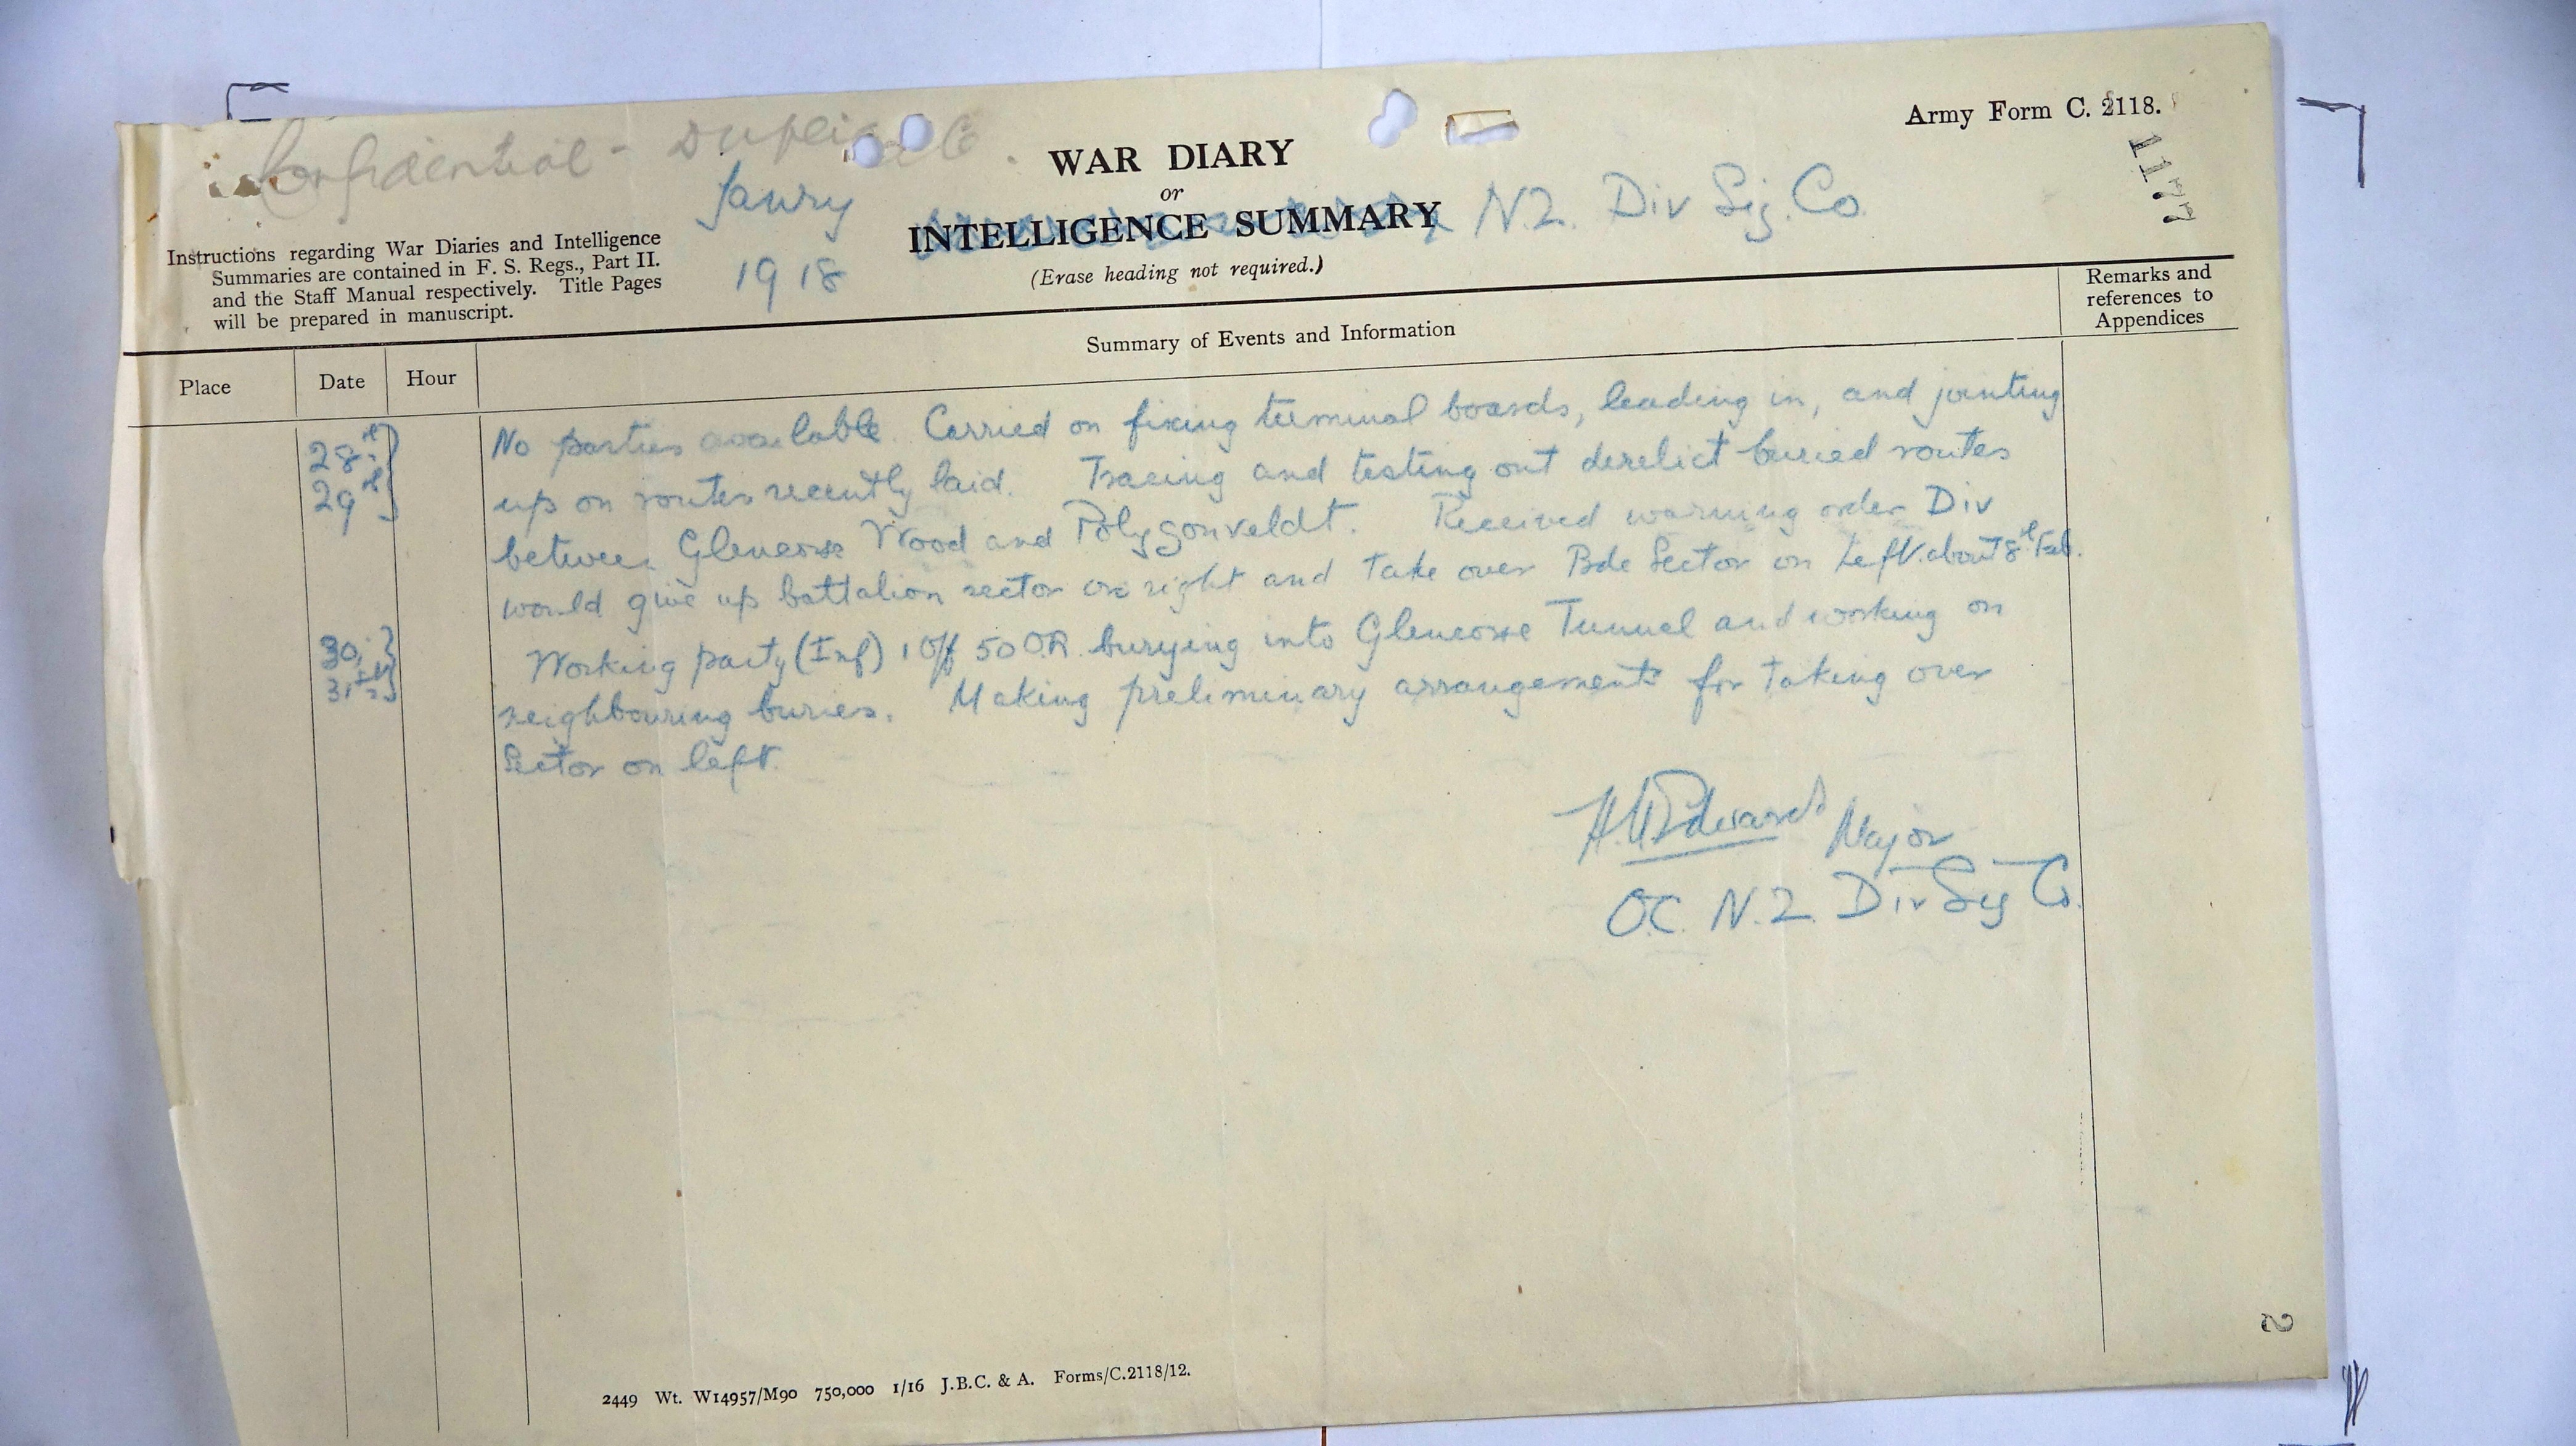 Confidential - Duplicate.
Army Form C. 2118.
1177
WAR DIARY
or
INTELLIGENCE SUMMARY
(Erase heading not required.)
Janry
1918
N.Z. Div Sig. Co.
Instructions regarding War Diaries and Intelligence
Summaries are contained in F. S. Regs., Part II.
and the Staff Manual respectively. Title Pages
will be prepared in manuscript.
Place Date Hour Summary of Events and Information Remarks and
references to
Appendices
28th No parties available. Carried on fixing terminal boards, leading in, and jointing
29th up on routes recently laid. Tracing and testing out derelict buried routes
between Glencorse Wood and Polygonveldt. Received warning order Div
would give up battalion sector on right and take over Bde Sector on Left about 8th Feb.
30th Working party (Inf) 1 Off 50 OR. burying into Glencorse Tunnel and working on
31st neighbouring buries. Making preliminary arrangements for taking over
Sector on left.
Edwards Major
O.C. N.Z. Div Sig Co.
2449 Wt. W14957/M90 750,000 1/16 J.B.C. & A. Forms/C.2118/12.
2